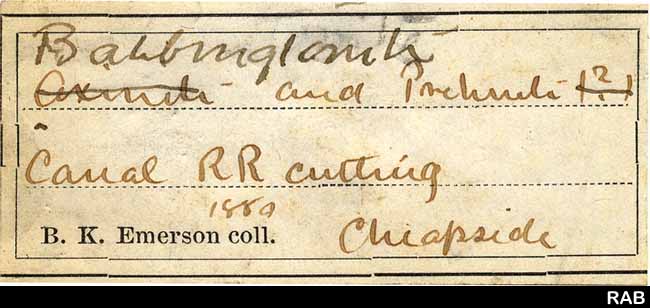 Babbingtonite
Axinite and Prehnite (?)
Canal RR cutting
1880
B. K. Emerson coll. Cheapside
RAB